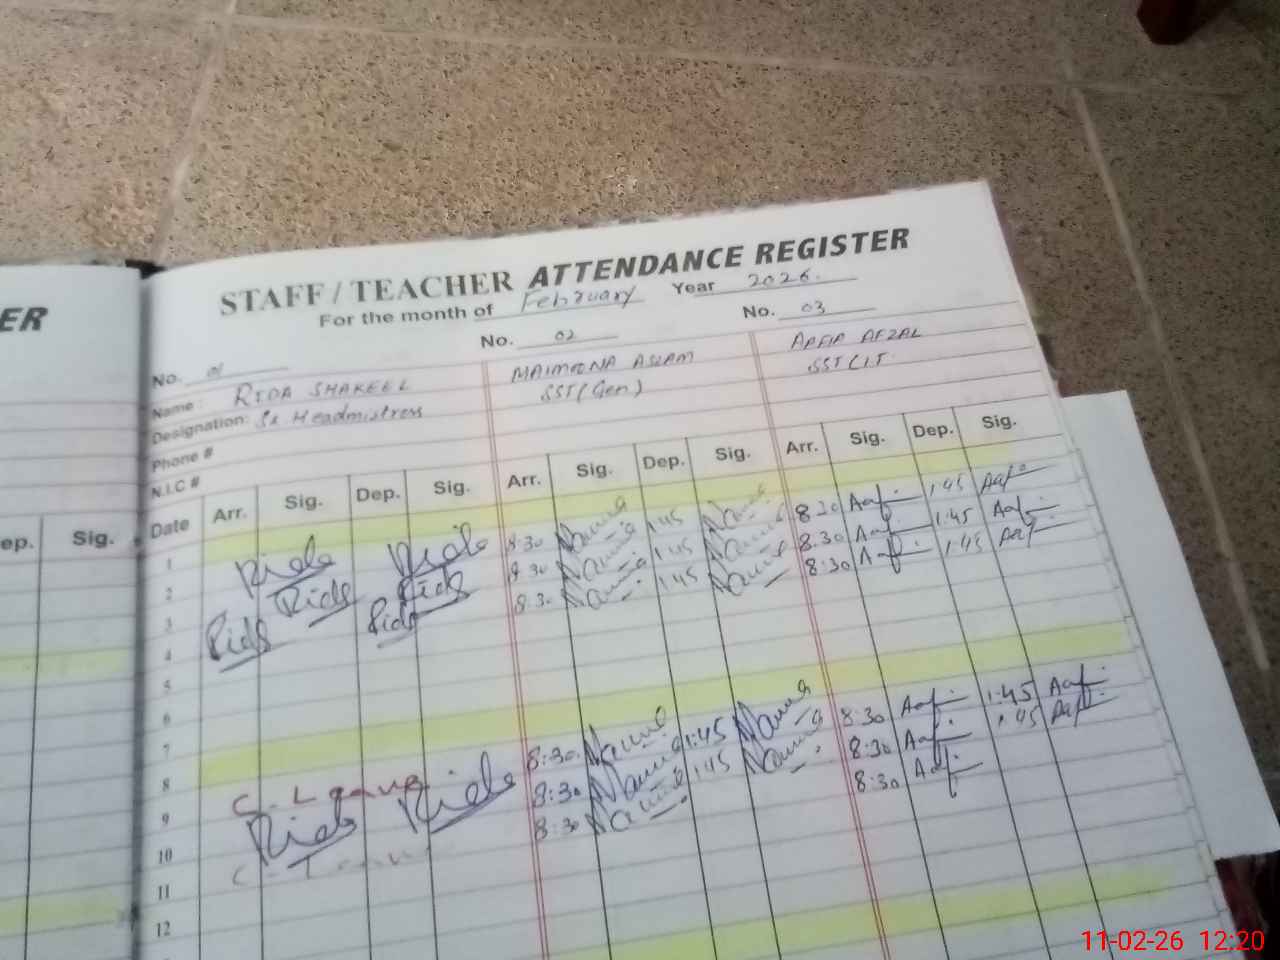 ER
STAFF / TEACHER ATTENDANCE REGISTER
For the month of February Year 2026.
No. 01 No. 02 No. 03
Name: RIDA SHAKEEL MAIMOONA ASLAM AFZAL
Designation: Sr. Headmistress SST (Gen) SST (IT
Phone #
N.I.C #
ep. Sig. Date Arr. Sig. Dep. Sig. Arr. Sig. Dep. Sig. Arr. Sig. Dep. Sig.
1
2 Rida Rida 8:30 1:45 8:30 Aafi 1:45 Aafi
3 Rida Rida 8:30 1:45 8:30 Aafi 1:45 Aafi
4 Rida Rida 8:30 1:45 8:30 Aafi 1:45 Aafi
5
6
7
8
9 C. Leave 8:30 1:45 8:30 Aafi 1:45 Aafi
10 Rida Rida 8:30 1:45 8:30 Aafi 1:45 Aafi
11 8:30 8:30 Aafi
12
11-02-26 12:20